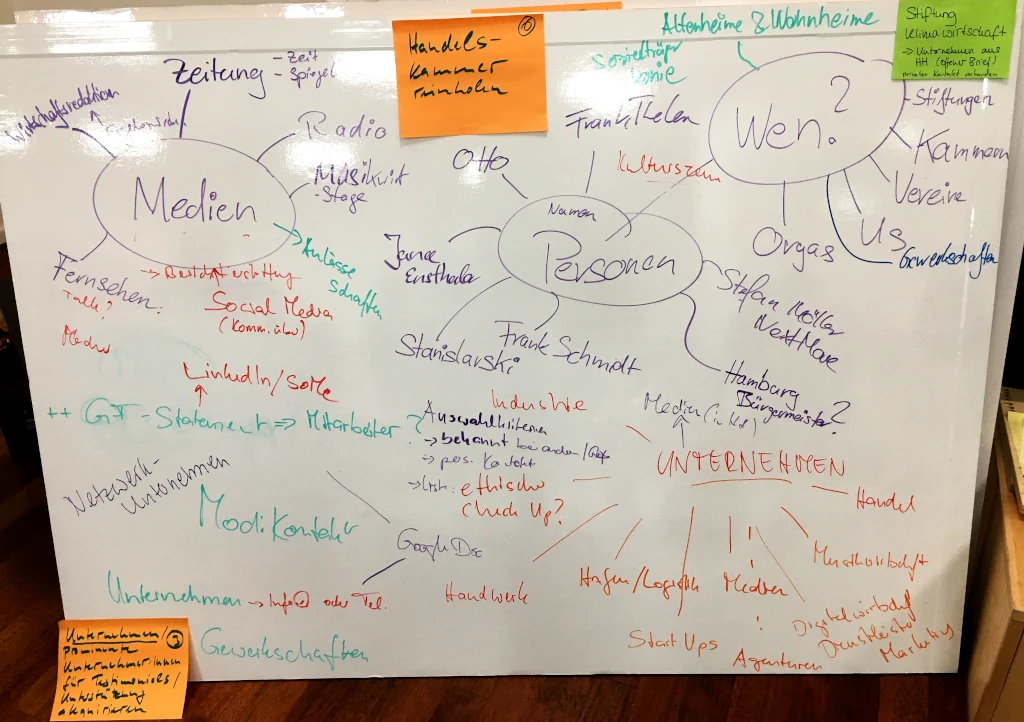 Altenheime & Wohnheime
Stiftung
Klimawirtschaft
→ Unternehmen aus
HH (offener Brief)
Kontakt vorhanden
6
Handels-
kammer
reinholen
Zeitung
- Zeit
- Spiegel
Wirtschaftsredaktion
Radio
Musikwirt
- Stage
Medien
→ Anlässe
schaffen
Fernsehen:
Talk?
Social Media
(Komm. über)
Frank Thelen
Otto
Kulturszene
Namen
Personen
Janne
Ensthaler
Stanislawski
Frank Schmidt
Stefan Möller
NextMove
Hamburg
Bürgermeister?
Wen?
- Stiftungen
Kammern
Vereine
Us
Orgas
Gewerkschaften
LinkedIn/SoMe
++ GF-Statement ⇒ Mitarbeiter?
Netzwerk-
Unternehmen
Auswahlkriterien
→ bekannt bei
→ pos.
ethischer
Check Up?
Google Doc
Unternehmen → Info@ oder Tel.
Gewerkschaften
Industrie
UNTERNEHMEN
Handel
Musikwirtschaft
Handwerk
Hafen/Logistik
Medien
StartUps
Agenturen
Digitalwirtschaft
Dienstleister
Marketing
Unternehmen/
prominente
Unternehmer:innen
für Testimonials/
Unterstützung
akquirieren
5